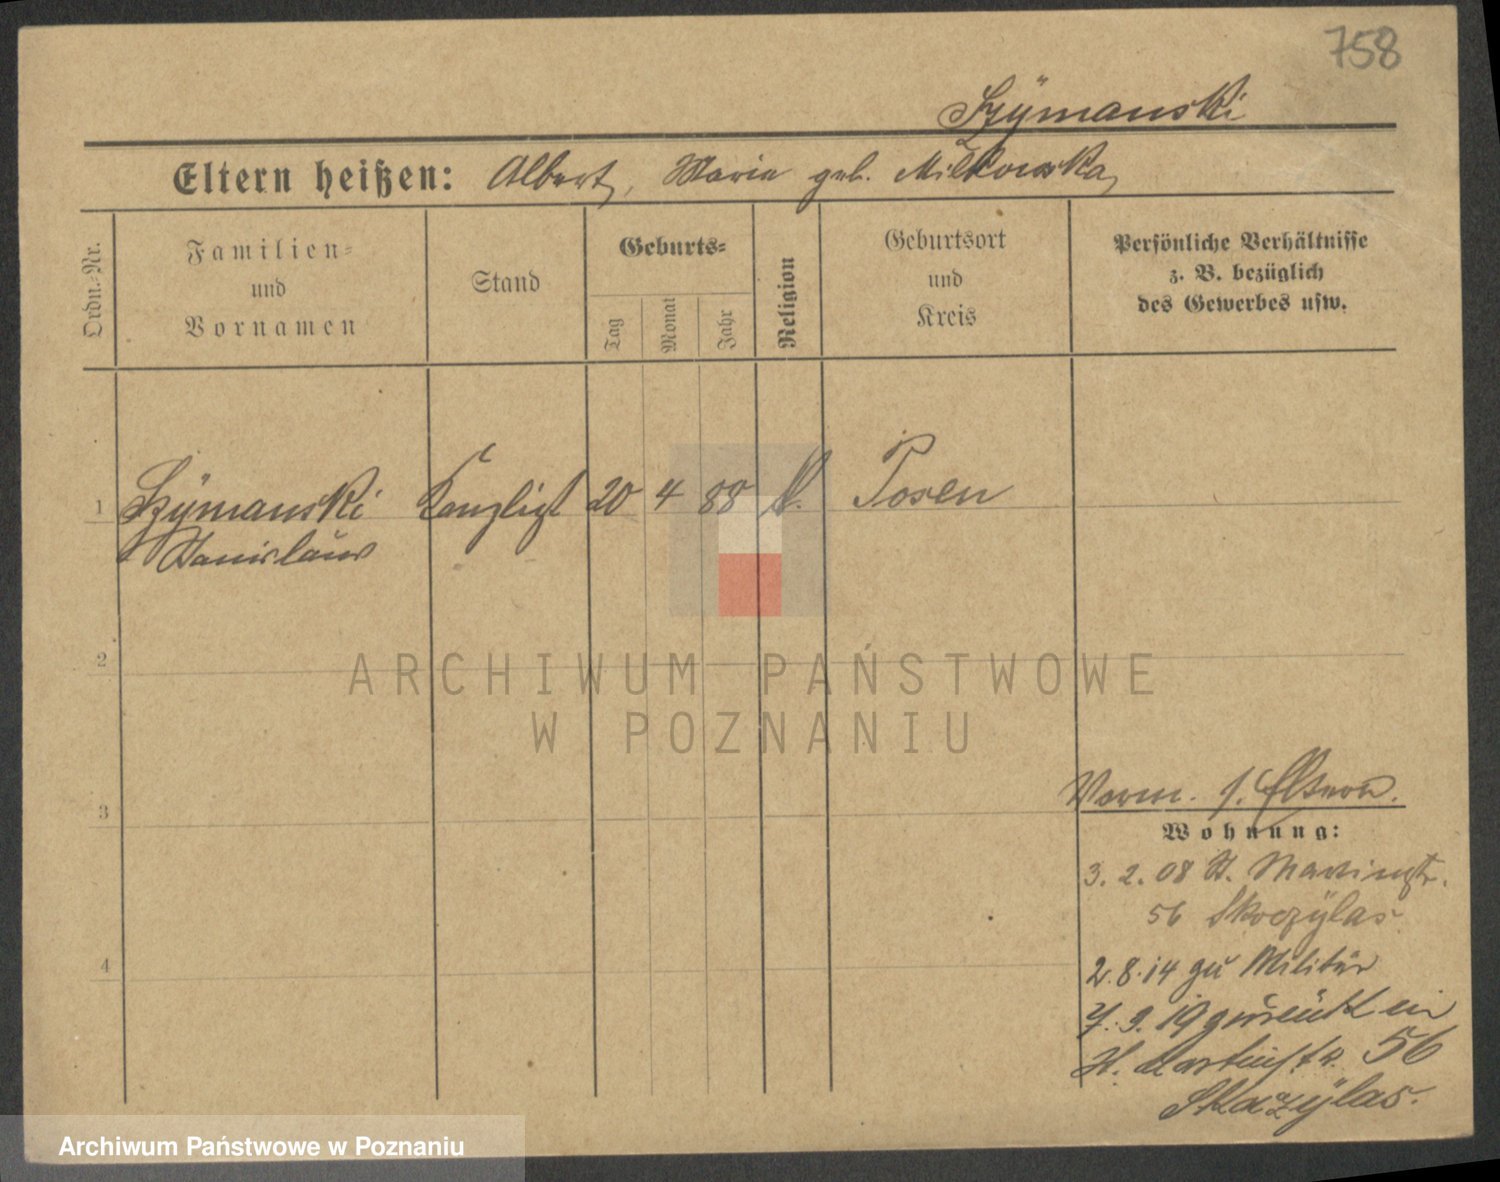 758
Szÿmanski
Eltern heißen: Albert, Maria geb. Milkowska
Ordn.-Nr.
Familien-
und
Vornamen
Stand
Geburts-
Tag
Monat
Jahr
Religion
Geburtsort
und
Kreis
Persönliche Verhältnisse
z. B. bezüglich
des Gewerbes usw.
1 Szÿmanski Kanzlist 20 4 88 Posen
Stanislaus
2
3
4
ARCHIWUM PAŃSTWOWE
W POZNANIU
Vorm. s. Eltern.
Wohnung:
3. 2. 08 St. Martinstr.
56 Skoczÿlas
2. 8. 14 zu Militär
7. 3. 19 zurück in
St. Martinstr. 56
Skaczÿlas.
Archiwum Państwowe w Poznaniu